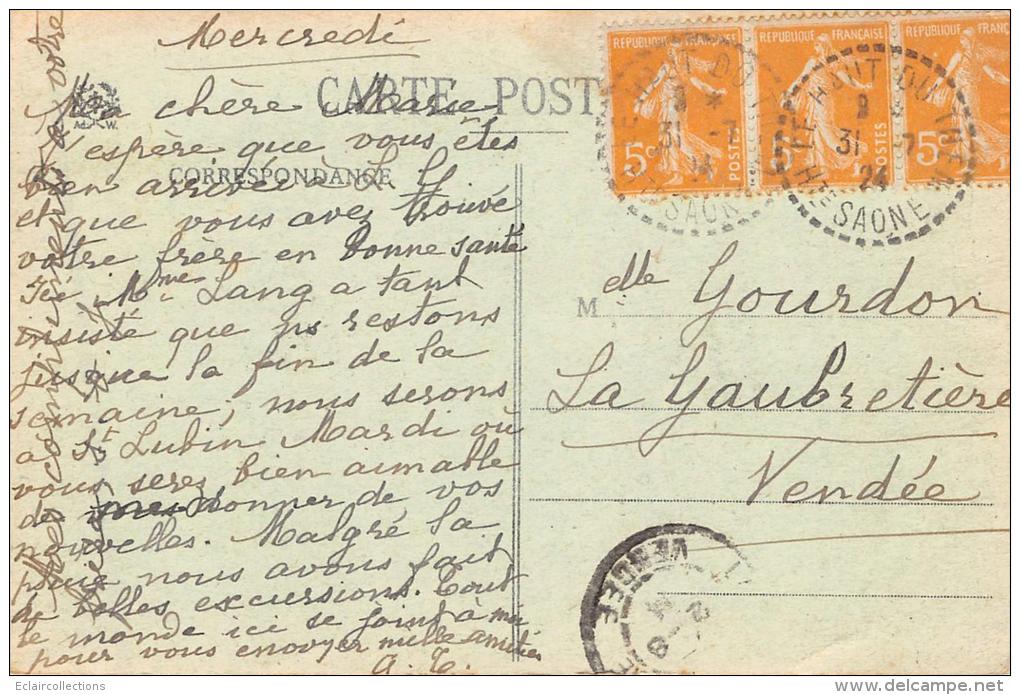 Mercredi
CARTE POST
Ma chère Marie
J'espère que vous êtes
CORRESPONDANCE
bien arrivée à
et que vous avez trouvé
votre frère en bonne santé
Ici Mme Lang a tant
insisté que ns restons
jusque la fin de la
semaine; nous serons
à St Lubin Mardi où
vous serez bien aimable
de donner de vos
nouvelles. Malgré la
pluie nous avons fait
de belles excursions. Tout
le monde ici se joint à moi
pour vous envoyer mille amitiés
A. T.
A. W.
REPUBLIQUE FRANÇAISE
5c POSTES
REPUBLIQUE FRANÇAISE
POSTES
REPUBLIQUE FRANÇAISE
5c
LE HAUT DU THEM
8 *
31 -7
24
Hte SAONE
LE HAUT DU THEM
8
31 -7
24
Hte SAONE
Melle Gourdon
La Gaubretière
Vendée
VENDEE
Eclaircollections
delcampe.net